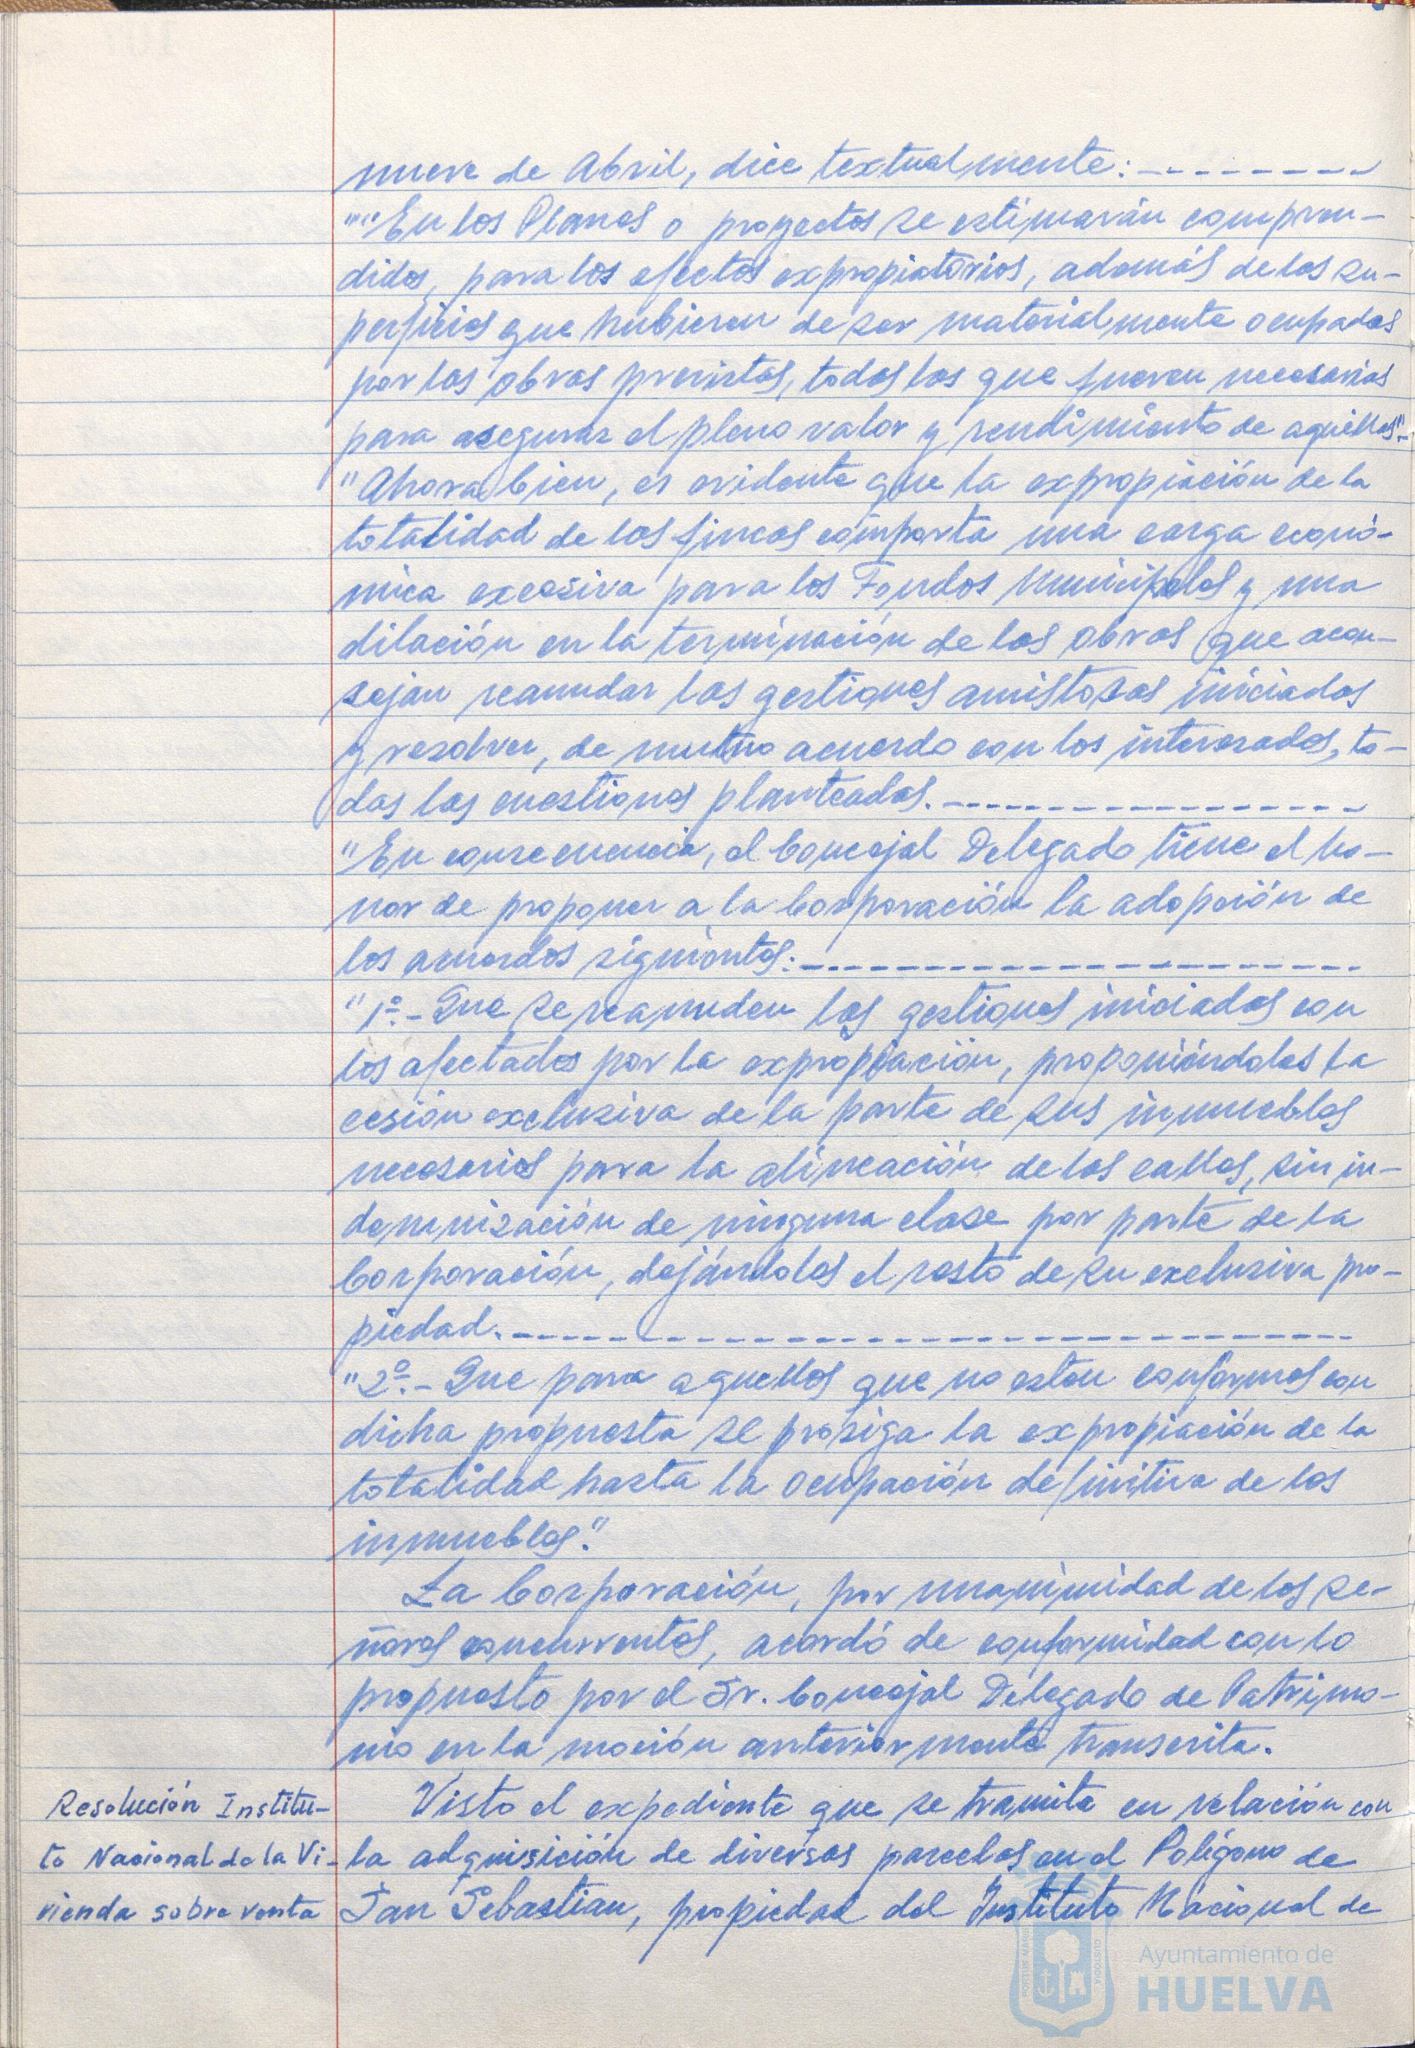 nueve de Abril, dice textualmente:-------
""En los Planos o proyectos se estimarán compren-
didos, para los efectos expropiatorios, además de las su-
perficies que hubieren de ser materialmente ocupadas
por las obras previstas, todas las que fueren necesarias
para asegurar el pleno valor y rendimiento de aquéllas"-
"Ahora bien, es evidente que la expropiación de la
totalidad de las fincas comporta una carga econó-
mica excesiva para los Fondos Municipales y una
dilación en la terminación de las obras que acon-
sejan reanudar las gestiones amistosas iniciadas
y resolver, de mutuo acuerdo con los interesados, to-
das las cuestiones planteadas.-----------------
"En consecuencia, el Concejal Delegado tiene el ho-
nor de proponer a la Corporación la adopción de
los acuerdos siguientes:-----------------------
"1º.- Que se reanuden las gestiones iniciadas con
los afectados por la expropiación, proponiéndoles la
cesión exclusiva de la parte de sus inmuebles
necesarios para la alineación de las calles, sin in-
demnización de ninguna clase por parte de la
Corporación, dejándoles el resto de su exclusiva pro-
piedad.----------------------------------
"2º.- Que para aquellos que no esten conformes con
dicha propuesta se prosiga la expropiación de la
totalidad hasta la ocupación definitiva de los
inmuebles."
La Corporación, por unanimidad de los se-
ñores concurrentes, acordó de conformidad con lo
propuesto por el Sr. Concejal Delegado de Patrimo-
nio en la moción anteriormente transcrita.
Resolución Institu-
to Nacional de la Vi-
vienda sobre venta
Visto el expediente que se tramita en relación con
la adquisición de diversas parcelas en el Polígono de
San Sebastian, propiedad del Instituto Nacional de
Ayuntamiento de
HUELVA